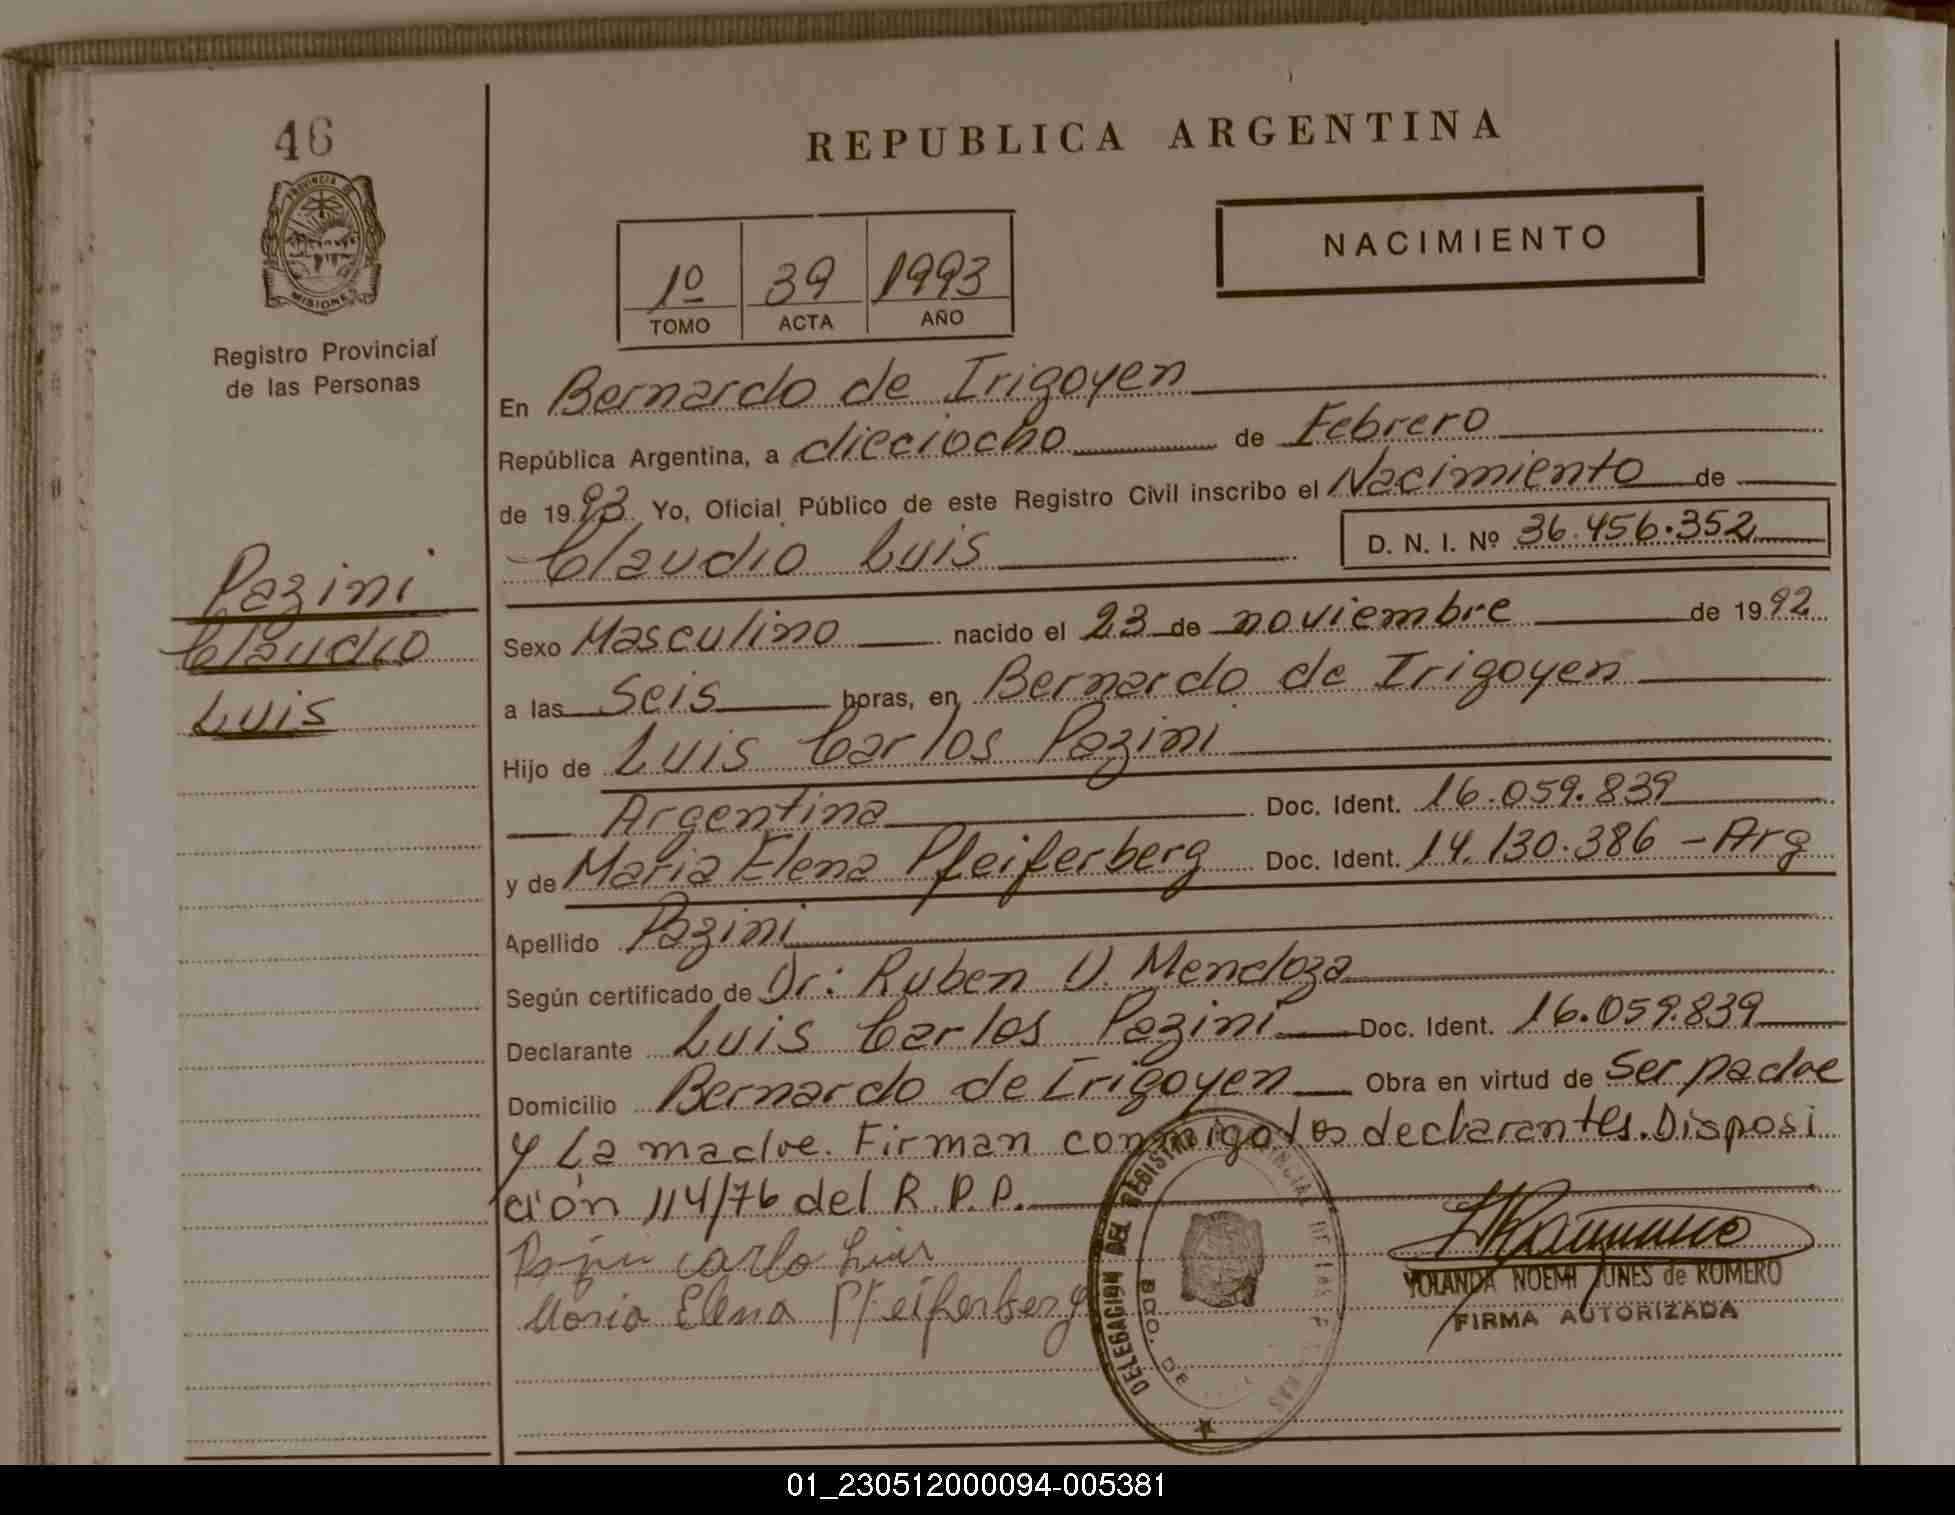 46
PROVINCIA DE
MISIONES
Registro Provincial
de las Personas
Pazini
Claudio
Luis
REPUBLICA ARGENTINA
1º 39 1993
TOMO ACTA AÑO
NACIMIENTO
En Bernardo de Irigoyen
República Argentina, a dieciocho de Febrero
de 1993 Yo, Oficial Público de este Registro Civil inscribo el Nacimiento de
Claudio Luis D. N. I. Nº 36.456.352
Sexo Masculino nacido el 23 de noviembre de 1992
a las Seis horas, en Bernardo de Irigoyen
Hijo de Luis Carlos Pazini
Argentina Doc. Ident. 16.059.839
y de Maria Elena Pfeiferberg Doc. Ident. 14.130.386 - Arg
Apellido Pazini
Según certificado de Dr: Ruben U. Mendoza
Declarante Luis Carlos Pazini Doc. Ident. 16.059.839
Domicilio Bernardo de Irigoyen Obra en virtud de Ser padre
y La madre. Firman conmigo los declarantes. Disposi
ción 114/76 del R. P. P.
carlo Luis
Maria Elena Pfeiferberg
DELEGACION DEL REGISTRO PROVINCIAL DE LAS PERSONAS
BDO. DE
YOLANDA NOEMI JUNES de ROMERO
FIRMA AUTORIZADA
01_230512000094-005381